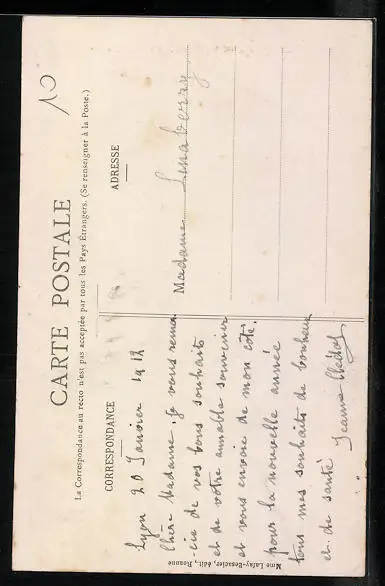 10
CARTE POSTALE
La Correspondance au recto n'est pas acceptée par tous les Pays Étrangers. (Se renseigner à la Poste.)
CORRESPONDANCE
ADRESSE
Lyon 20 Janvier 1912
Chère Madame, je vous remer
cie de vos bons souhaits
et de votre aimable souvenir
et vous envoie de mon côté
pour la nouvelle année
tous mes souhaits de bonheur
et de santé Jeanne
Madame
Mme Lafay-Besacier, édit, Roanne